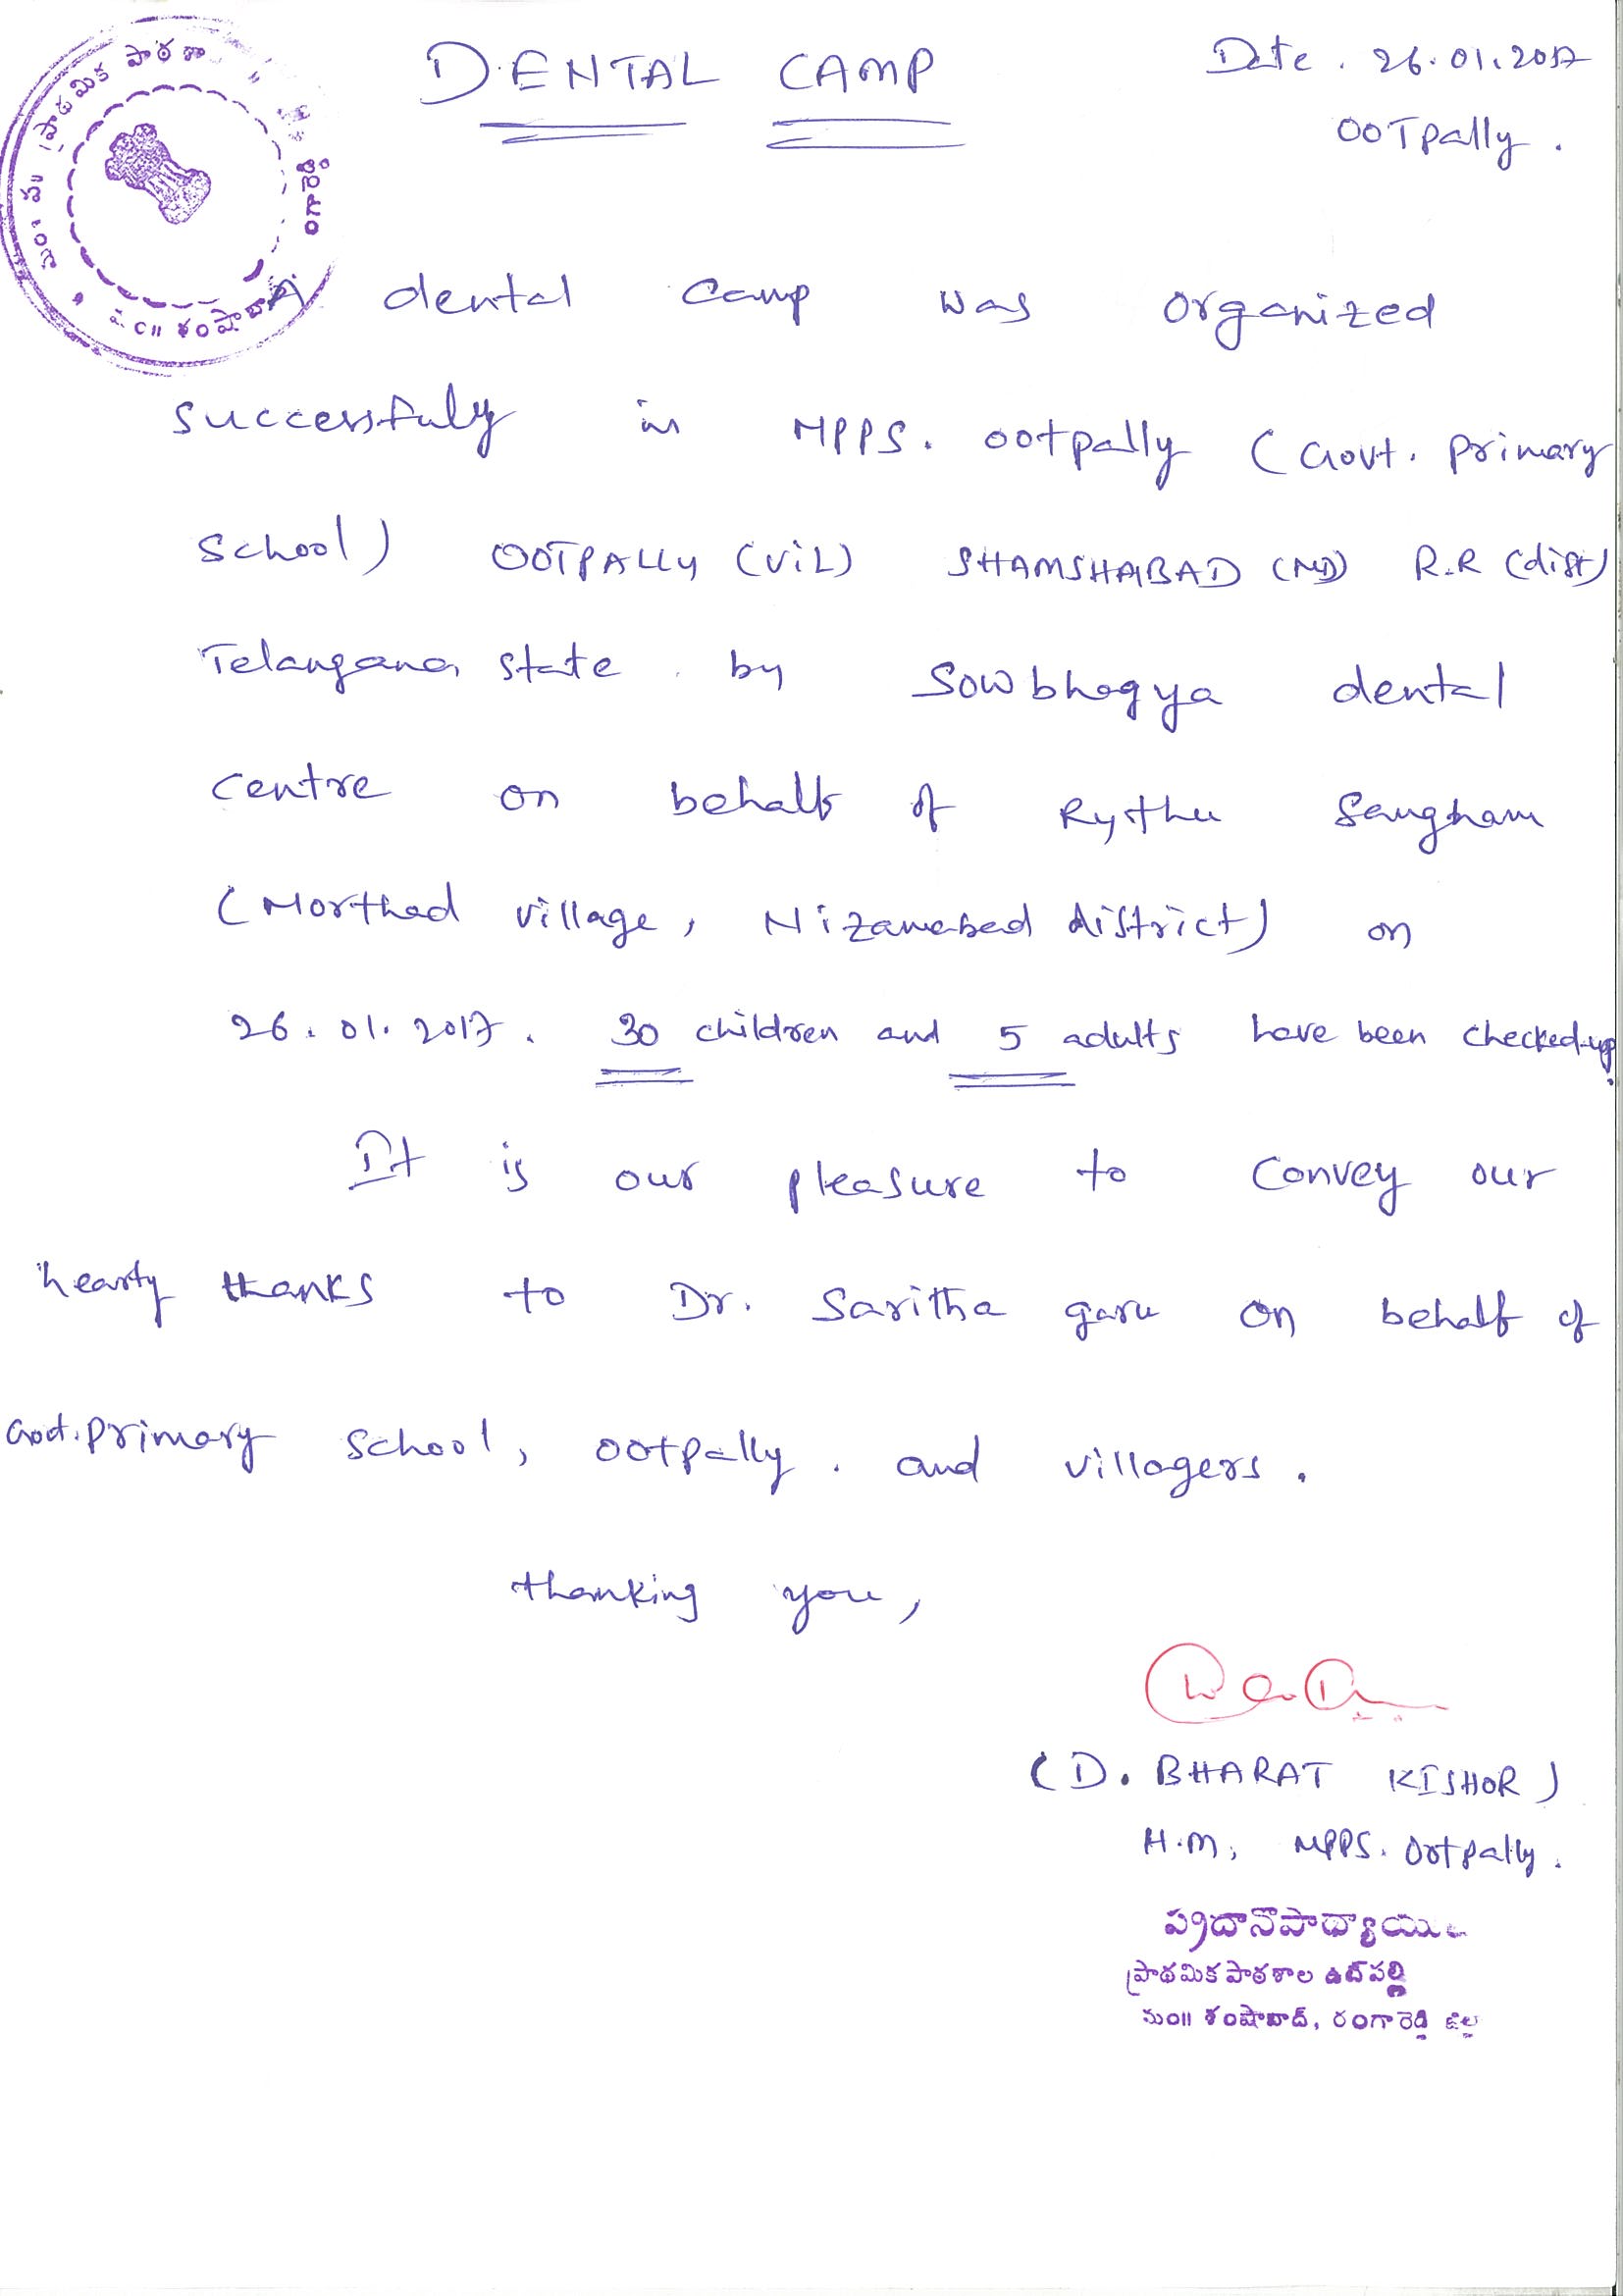 DENTAL CAMP
Date. 26.01.2017
OOTpally.
మం ప ప్రాథమిక పాఠశా
A dental camp was organized
successfuly in MPPS. ootpally (Govt. primary
school) OOTPALLY (ViL) SHAMSHABAD (MD) R.R (dist)
Telangana state. by Sowbhagya dental
centre on behalf of Rythu Sangham
(Morthad village, Nizamabad district) on
26.01.2017. 30 children and 5 adults have been checked-up.
It is our pleasure to convey our
hearty thanks to Dr. Saritha garu on behalf of
Govt. primary school, ootpally. and villagers.
thanking you,
(D. BHARAT KISHOR)
H.M, MPPS. Ootpally.
ప్రదానోపాధ్యాయు
ప్రాథమిక పాఠశాల ఉట్‌పల్లి
మం॥ శంషాబాద్, రంగారెడ్డి జిల్లా